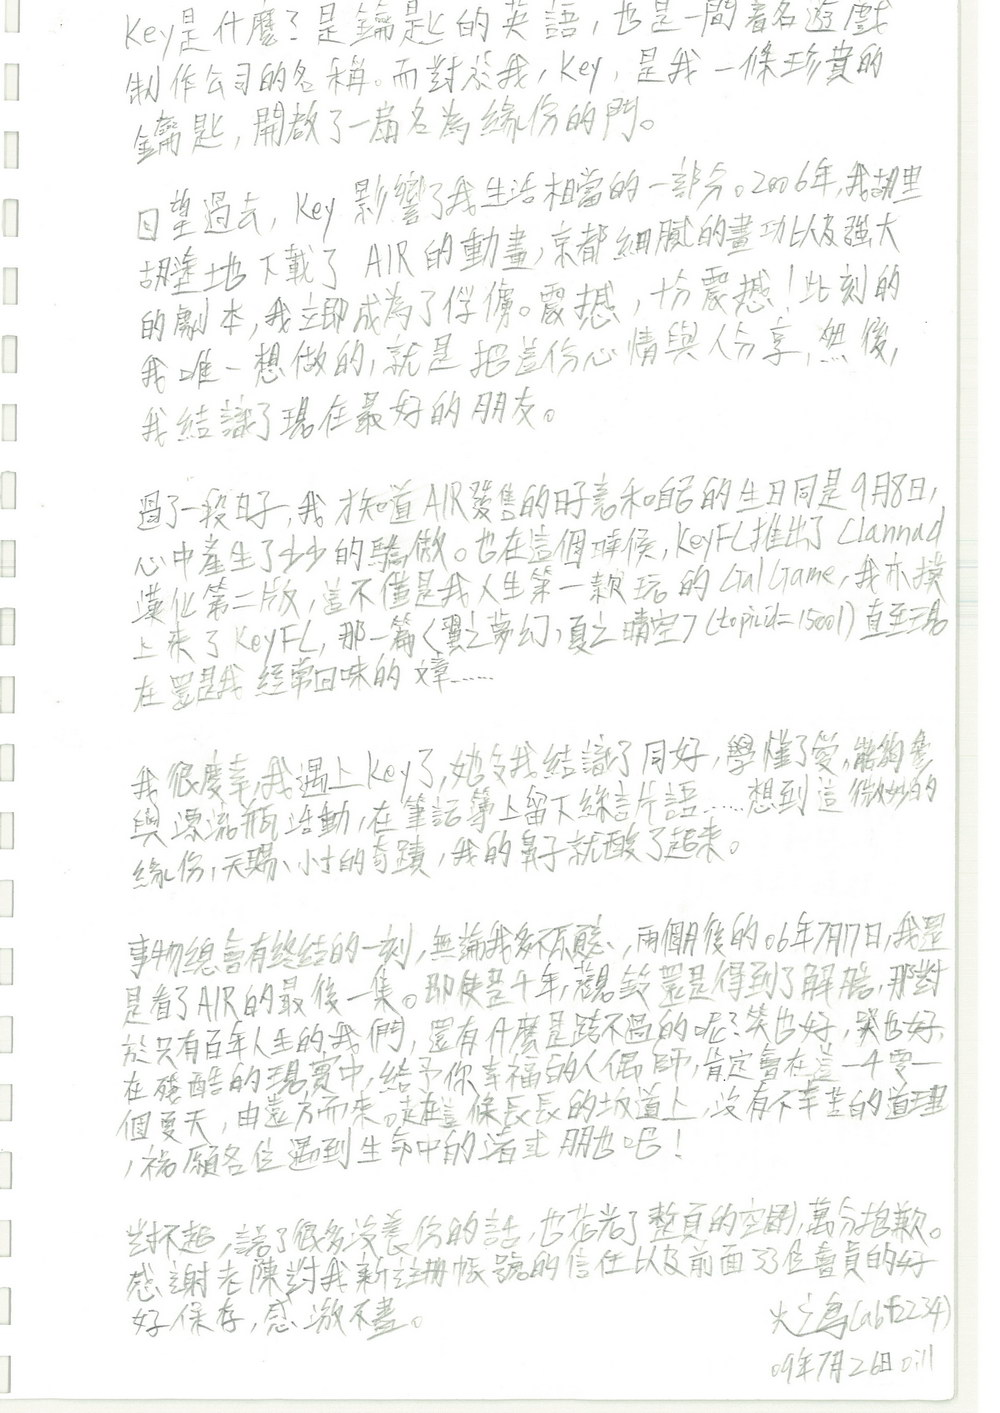 Key是什麼?是鑰匙的英語,也是一間著名遊戲
制作公司的名稱。而對於我,Key,是我一條珍貴的
鑰匙,開啟了一扇名為緣份的門。
回望過去,Key影響了我生活相當的一部分。2006年,我胡里
胡塗地下載了AIR的動畫,京都細膩的畫功以及強大
的劇本,我立即成為了俘虜。震撼,十分震撼!此刻的
我唯一想做的,就是把這份心情與人分享,然後,
我結識了現在最好的朋友。
過了一段日子,我才知道AIR發售的日子竟和自己的生日同是9月8日,
心中產生了少少的驕傲。也在這個時候,KeyFC推出了Clannad
漢化第二版,這不僅是我人生第一款玩的GalGame,我亦摸
上來了KeyFC,那一篇〈翼之夢幻,夏之晴空〉(topicid=15001)直至現
在還是我經常回味的文章……
我很慶幸,我遇上Key了,她令我結識了同好,學懂了愛,能夠參
與漂流瓶活動,在筆記簿上留下絲言片語……想到這微妙的
緣份,天賜小小的奇蹟,我的鼻子就酸了起來。
事物總會有終結的一刻,無論我多不願,兩個月後的06年7月17日,我還
是看了AIR的最後一集。即使是千年,觀鈴還是得到了解脫,那對
於只有百年人生的我們,還有什麼是跨不過的呢?笑也好,哭也好,
在殘酷的現實中,給予你幸福的人偶師,肯定會在這一千零一
個夏天,由遠方而來。走在這條長長的坂道上,沒有不辛苦的道理
,祝願各位遇到生命中的渚或朋也吧!
對不起,話了很多沒養份的話,也花光了整頁的空間,萬分抱歉。
感謝老陳對我新註冊帳號的信任以及前面33位會員的好
好保存,感激不盡。
火之鳥(abf2234)
09年7月26日 0111